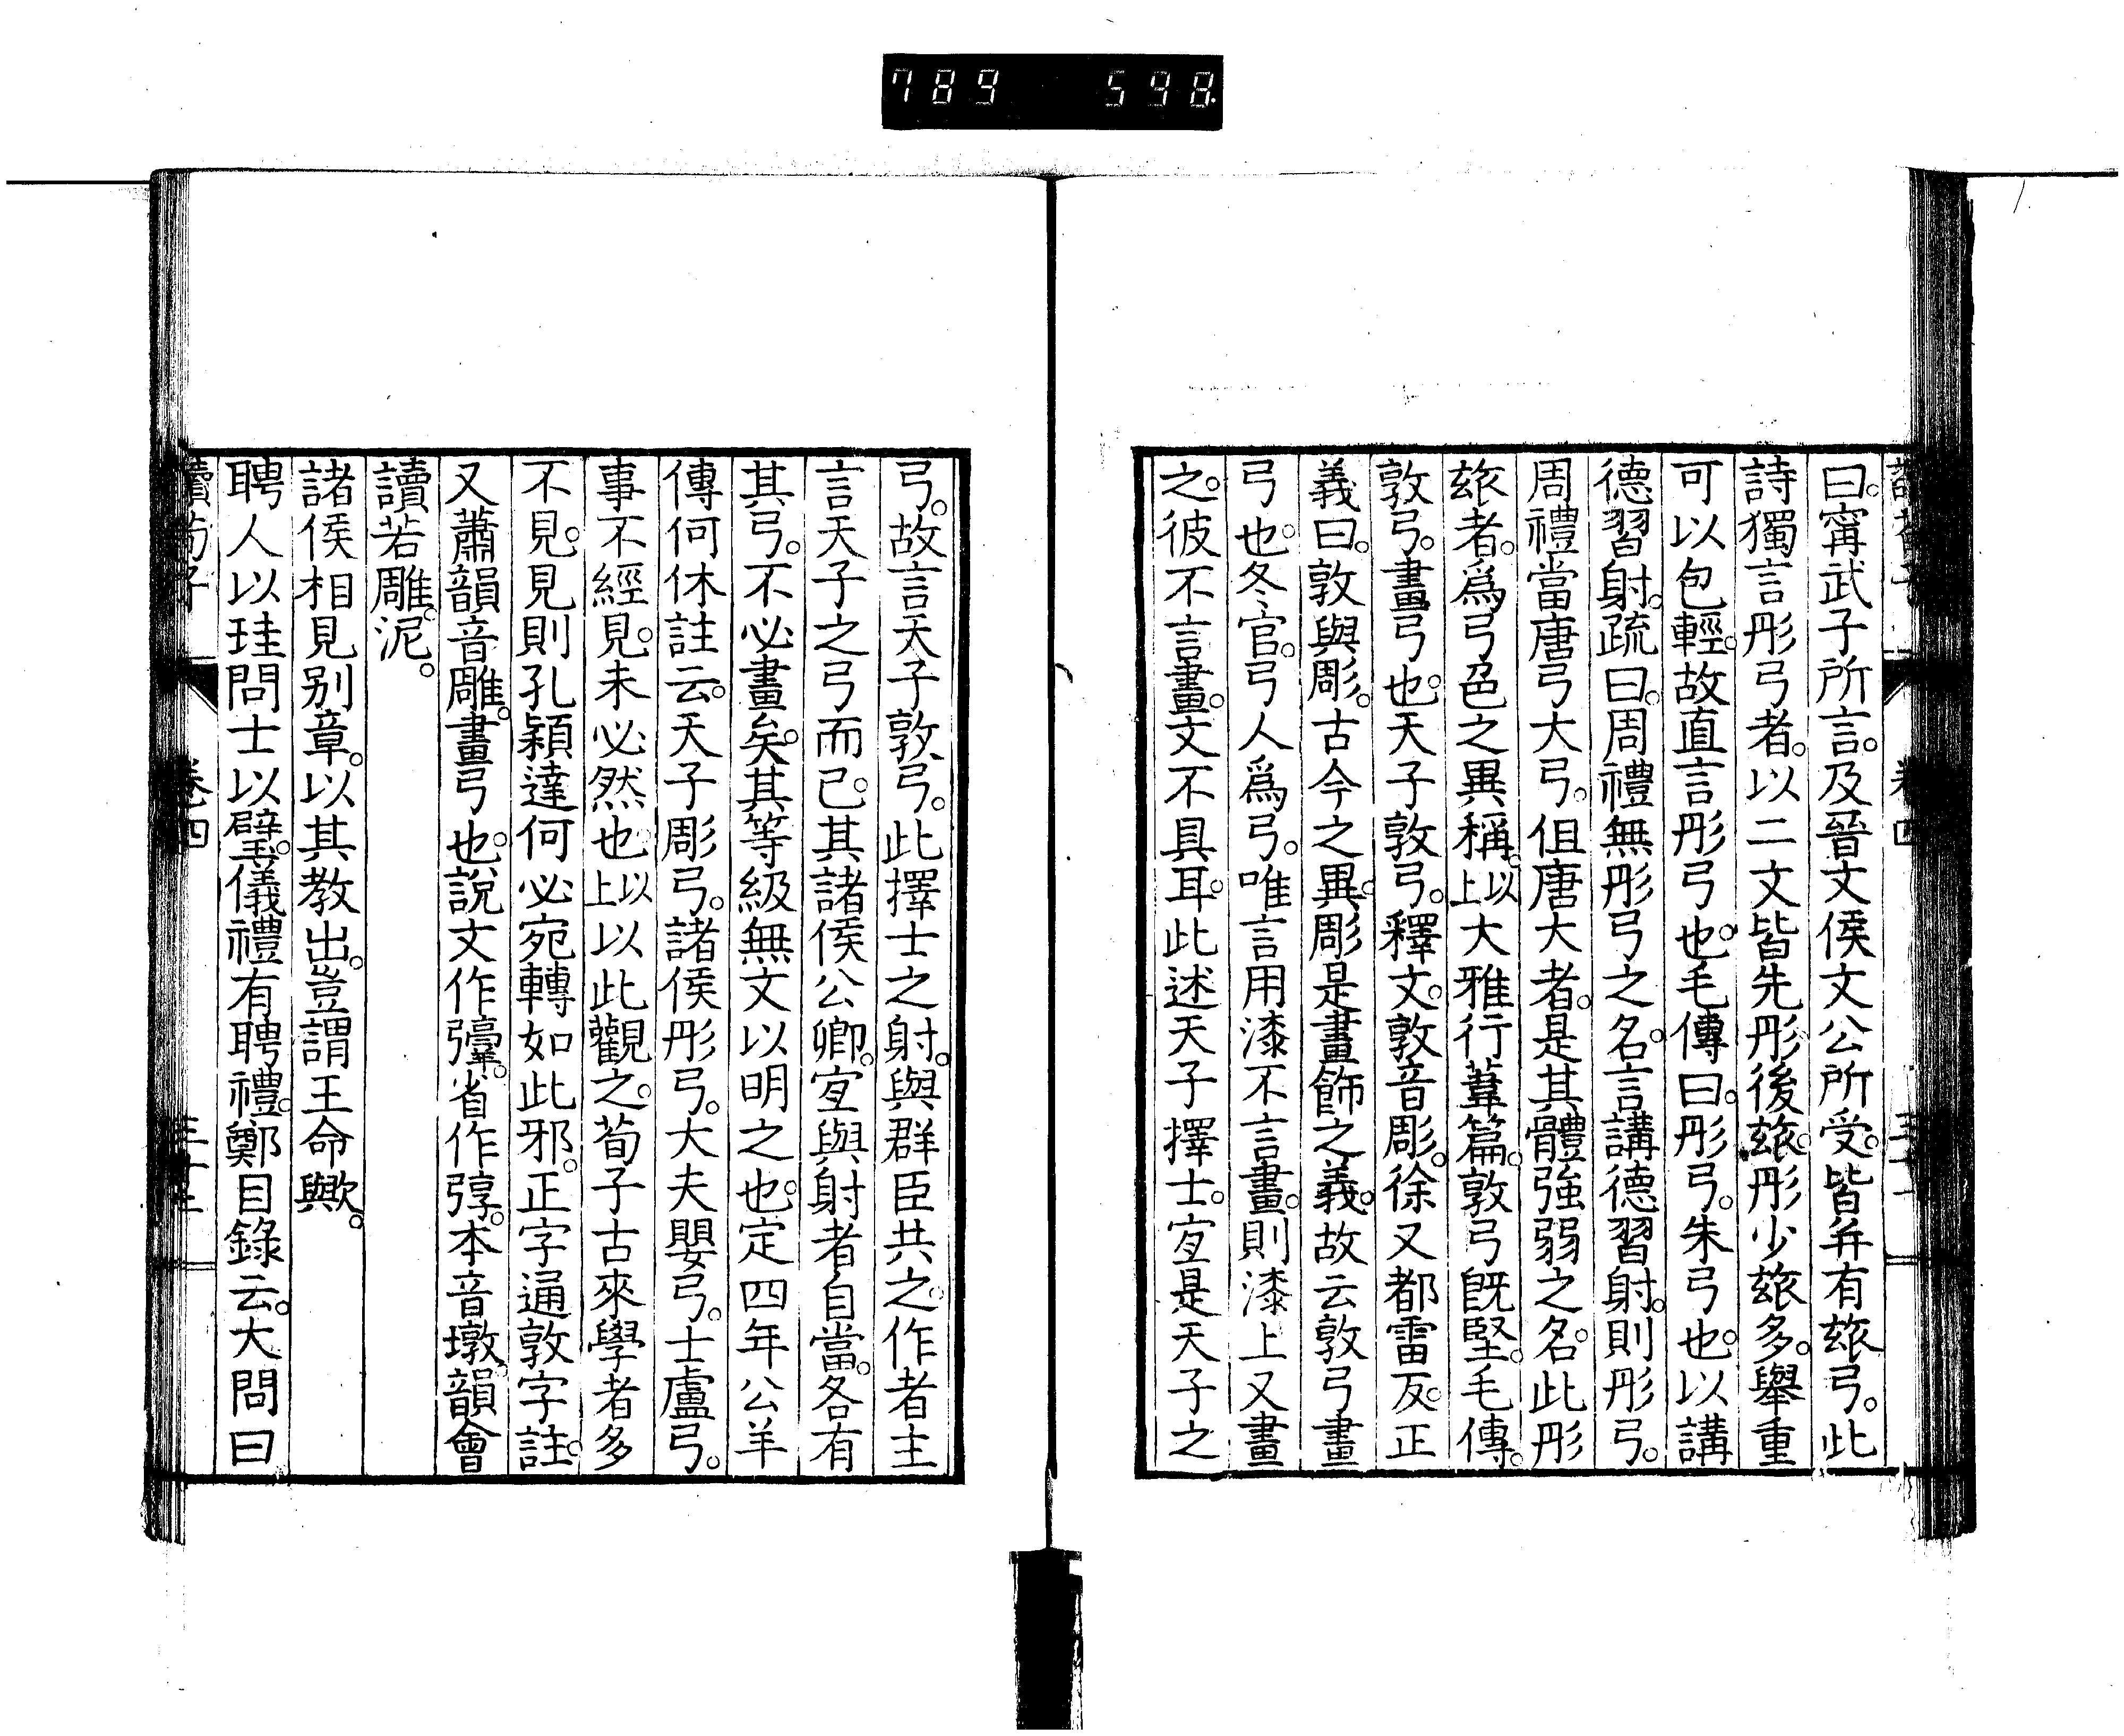 789 598
曰。甯武子所言。及晉文侯文公所受。皆并有玈弓。此
詩獨言彤弓者。以二文皆先彤後玈。彤少玈多。舉重
可以包輕。故直言彤弓也。毛傳曰。彤弓。朱弓也。以講
德習射。疏曰。周禮無彤弓之名。言講德習射。則彤弓。
周禮當唐弓大弓。但唐大者。是其體強弱之名。此彤
玈者。爲弓色之異稱。以上大雅行葦篇。敦弓旣堅。毛傳。
敦弓。畫弓也。天子敦弓。釋文。敦音彫。徐又都雷反。正
義曰。敦與彫。古今之異。彫是畫飾之義。故云敦弓畫
弓也。冬官。弓人爲弓。唯言用漆不言畫。則漆上又畫
之。彼不言畫。文不具耳。此述天子擇士。宐是天子之
弓。故言天子敦弓。此擇士之射。與群臣共之。作者主
言天子之弓而已。其諸侯公卿。宐與射者自當。各有
其弓。不必畫矣。其等級無文以明之也。定四年公羊
傳何休註云。天子彫弓。諸侯彤弓。大夫嬰弓。士盧弓。
事不經見。未必然也。以上以此觀之。荀子古來學者多
不見。見則孔穎達何必宛轉如此邪。正字通敦字註。
又蕭韻音雕。畫弓也。說文作弴。省作弴。本音墩。韻會
讀若雕。泥。
諸侯相見別章。以其教出。豈謂王命歟。
聘人以珪問士以璧。儀禮有聘禮。鄭目錄云。大問曰
讀荀子 卷四